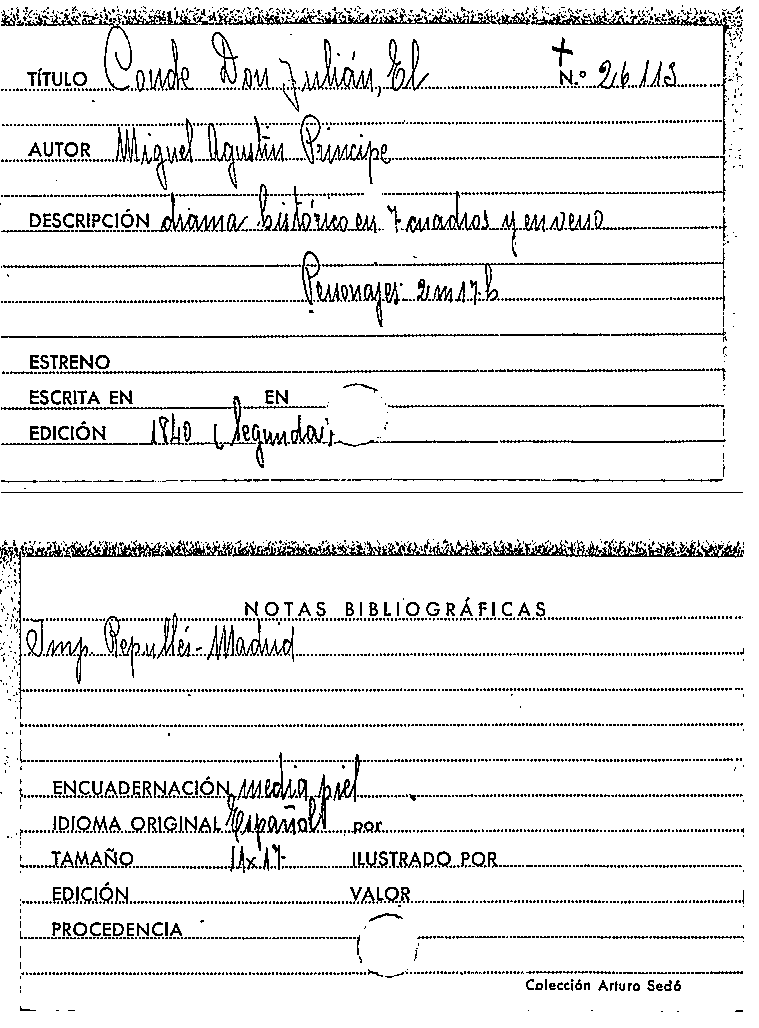 TÍTULO Conde Don Julián, El N.º 26113
AUTOR Miguel Agustín Príncipe
DESCRIPCIÓN drama histórico en 7 cuadros y en verso
Personajes 2 m 17 h
ESTRENO
ESCRITA EN EN
EDICIÓN 1840 (Segunda)
NOTAS BIBLIOGRÁFICAS
Imp. Repullés - Madrid
ENCUADERNACIÓN media piel
IDIOMA ORIGINAL Español por
TAMAÑO 11x17 ILUSTRADO POR
EDICIÓN VALOR
PROCEDENCIA
Colección Arturo Sedó